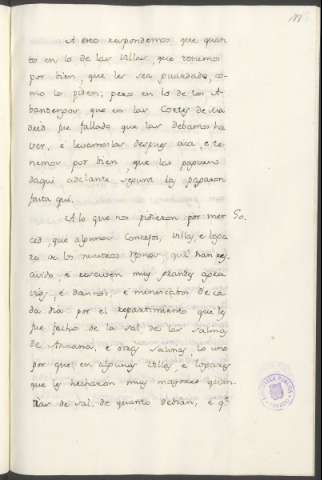 A esto respondemos que quan
to en lo de las Villas que tenemos
por bien, que les sea guardado, co-
mo lo piden; pero en lo de los A-
badengos que en las Cortes de Ma
dred fue fallado que las debamos ha
ver, e levamoslas despues aca, e te-
nemos por bien, que las paguen
daqui adelante segund la pagaron
fasta qui.
A lo que nos pidieron por mer 50.
ced, que algunos Conceios, Villas, e logа
res de los nuestros regnos que han res
cevido e resciven muy grandes agra
vios, e dannos, e menoscabos de ca
da dia por el repartimiento que les
fue fecho de la sal de las salinas
de Annana, e otras salinas, lo uno
por que en algunas Villas, e logares
que les hecharon muy mayores quan
tias de sal de quanto debian, e qe